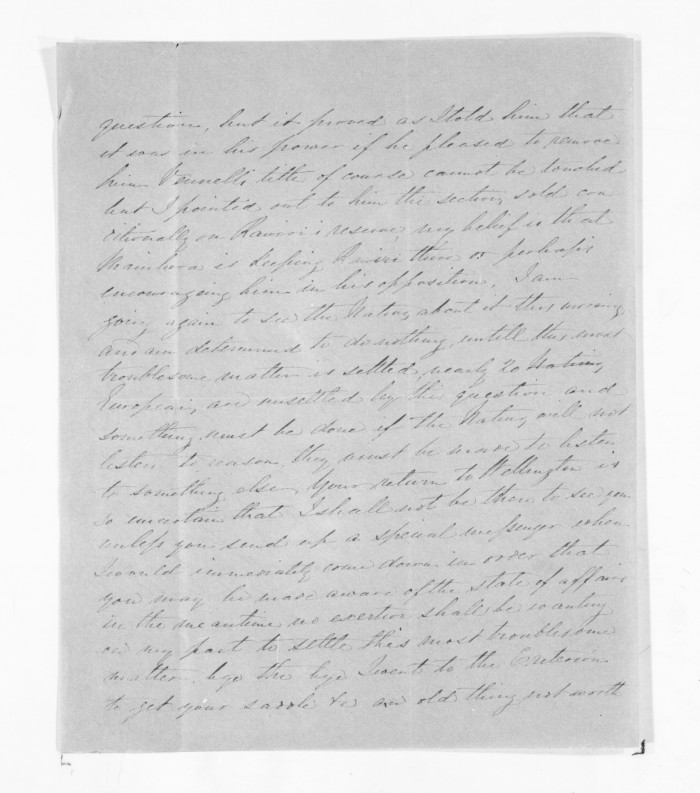 question, but it proved as I told him that
it was in his power if he pleased to remove
him title of course cannot be touched
but I pointed out to him the section sold con
ditionally on reserve, my belief is that
is keeping there or perhaps
encouraging him in his opposition, I am
going again to see the Natives about it this morning
and am determined to do nothing untill this most
troublesome matter is settled, nearly 20 Natives
European, are unsettled by this question and
something must be done if the Natives will not
listen to reason, they must be made to listen
to something else, Your return to Wellington is
so uncertain that I shall not be there to see you
unless you send up a special messenger when
I would immediately come down in order that
you may be made aware of the state of affairs
in the meantime no exertion shall be wanting
on my part to settle this most troublesome
matter. bye the bye I went to the
to get your sadle &c an old thing not worth